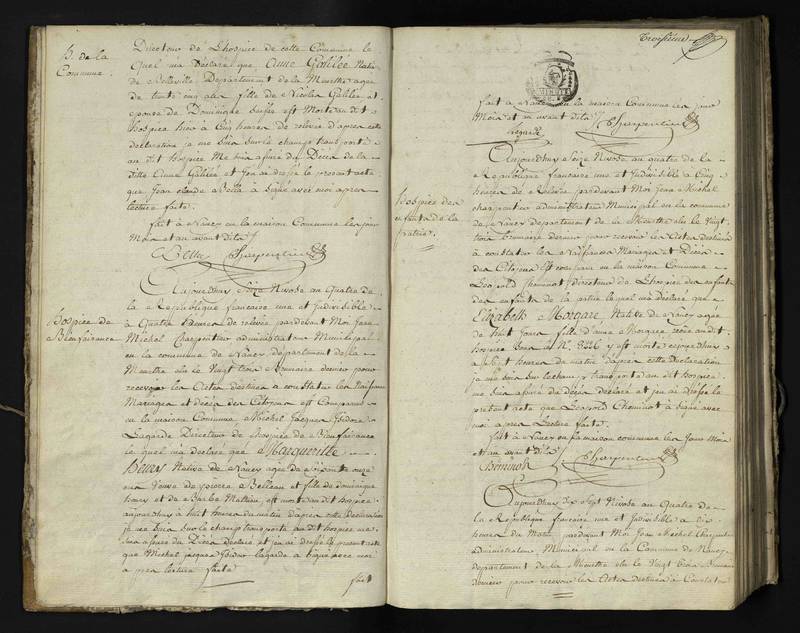 h. de la
Commune
Directeur de L'hospice de cette Commune le
quel ma Déclaré que Anne Galilée Nati
de Belleville Departement de la Meurthe agée
de trente cinq ans fille de Nicolas Galilée et
Epouse de Dominique est Morte au dit
hospice hier à Cinq heures de relevée d'après cette
déclaration je me suis sur le champ transporté
au dit hospice Me suis assuré du Décès de la
ditte Anne Galilée et j'en ai dressé le present acte
que Jean Claude Belle à Signé avec moi apres
lecture faite.
fait à Nancy en la maison Commune les jour
Mois et an avant dits
Belle Charpentier
Hospice de
Bienfaisance
Aujourdhuy Seize Nivose an Quatre de
la Republique francaise une et Indivisible
à Quatre heures de relevée pardevant Moi Jean
Michel Charpentier administrateur Municipal
en la commune de Nancy département de la
Meurthe élu le Vingt trois Brumaire dernier pour
recevoir les Actes destinés a constater les Naissances
Mariages et décès des Citoyens est Comparu
en la maison Commune Michel Jacques Isidore
Lagarde Directeur de l'hospice de Bienfaisance
le quel ma declaré que Margueritte
henry Native de Nancy agée de Soixante onze
ans Veuve de pierre Belleau et fille de dominique
henry et de Barbe Mathieu, est morte au dit hospice
aujourdhuy à huit heures du matin d'après cette déclaration
je me suis sur le champ transporté au dit hospice me
suis assuré du Décès declaré et j'en ai dressé le present acte
que Michel jacques Isidor lagarde a signé avec moi
a pres lecture faite
fait
Troisième
fait à Nancy en la maison Commune les jour
Mois et an avant dits
Charpentier
Hospice des
enfants de la
patrie.
Aujourdhuy Seize Nivose an quatre de la
Republique francaise une et Indivisible à Cinq
heures de Relevée pardevant Moi Jean Michel
charpentier administrateur Municipal en la commune
de Nancy departement de la Meurthe élu le Vingt
trois Brumaire dernier pour recevoir les Actes destinés
à constater les Naissances Mariages et Décès
des Citoyens est comparu en la maison Commune
Leopold Cheminot directeur de L'hospice des enfants
des enfants de la patrie lequel ma Déclaré que
Elizabeth Morgare Native de Nancy agée
de huit jours fille d'anne Morgare Entré au dit
hospice Sous le N.º 8226 y est morte aujourdhuy
a Sept heures du matin d'après cette Déclaration
je me suis Sur le champ transporté au dit hospice
me suis assuré du Décès declaré et j'en ai dressé le
présent acte que Leopold Cheminot à Signé avec
moi apres Lecture faite.
fait à Nancy en la maison commune les Jour Mois
et an avant dits
Cheminot Charpentier
Aujourdhuy dix Sept Nivose an Quatre de
la Republique francaise une et Indivisible a dix
heures du Matin pardevant Moi Jean Michel Charpentier
administrateur Municipal en la Commune de Nancy
departement de la Meurthe élu le Vingt trois Brumaire
dernier pour recevoir les Actes destinés à Constater